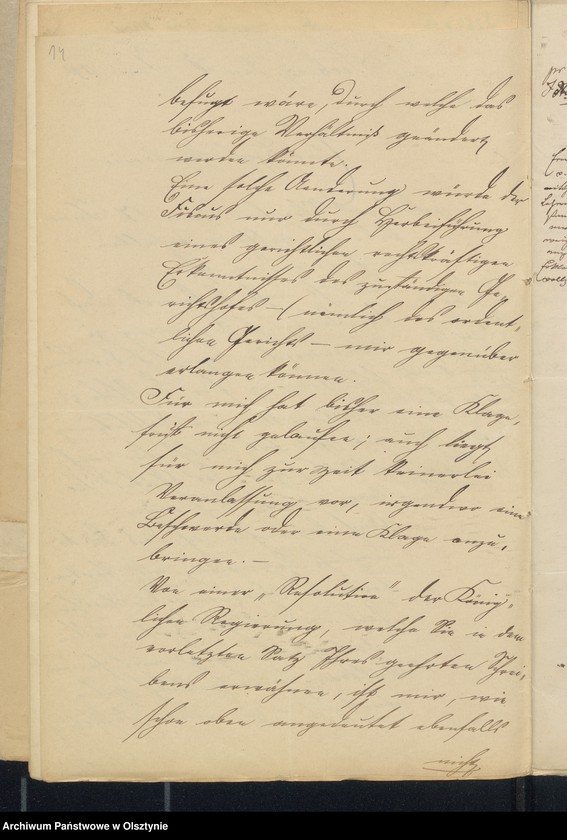 14
befugt wäre, durch welche das
bisherige Verhältniß geändert
werden könnte.
Eine solche Aenderung würde der
Fiscus nur durch Herbeiführung
eines gerichtlichen rechtskräftigen
Erkenntnisses des zuständigen Ge-
richtshofes – (nämlich des ordent-
lichen Gerichts – mir gegenüber
erlangen können.
Für mich hat bisher eine Klage-
frist nicht gelaufen; auch liegt
für mich zur Zeit keinerlei
Veranlassung vor, irgendwo eine
Beschwerde oder eine Klage anzu-
bringen. –
Von einer „Resolution" der König-
lichen Regierung, welche Sie in dem
vorletzten Satz Ihres geehrten Schrei-
bens erwähnen, ist mir, wie
schon oben angedeutet ebenfalls
nichts
Archiwum Państwowe w Olsztynie